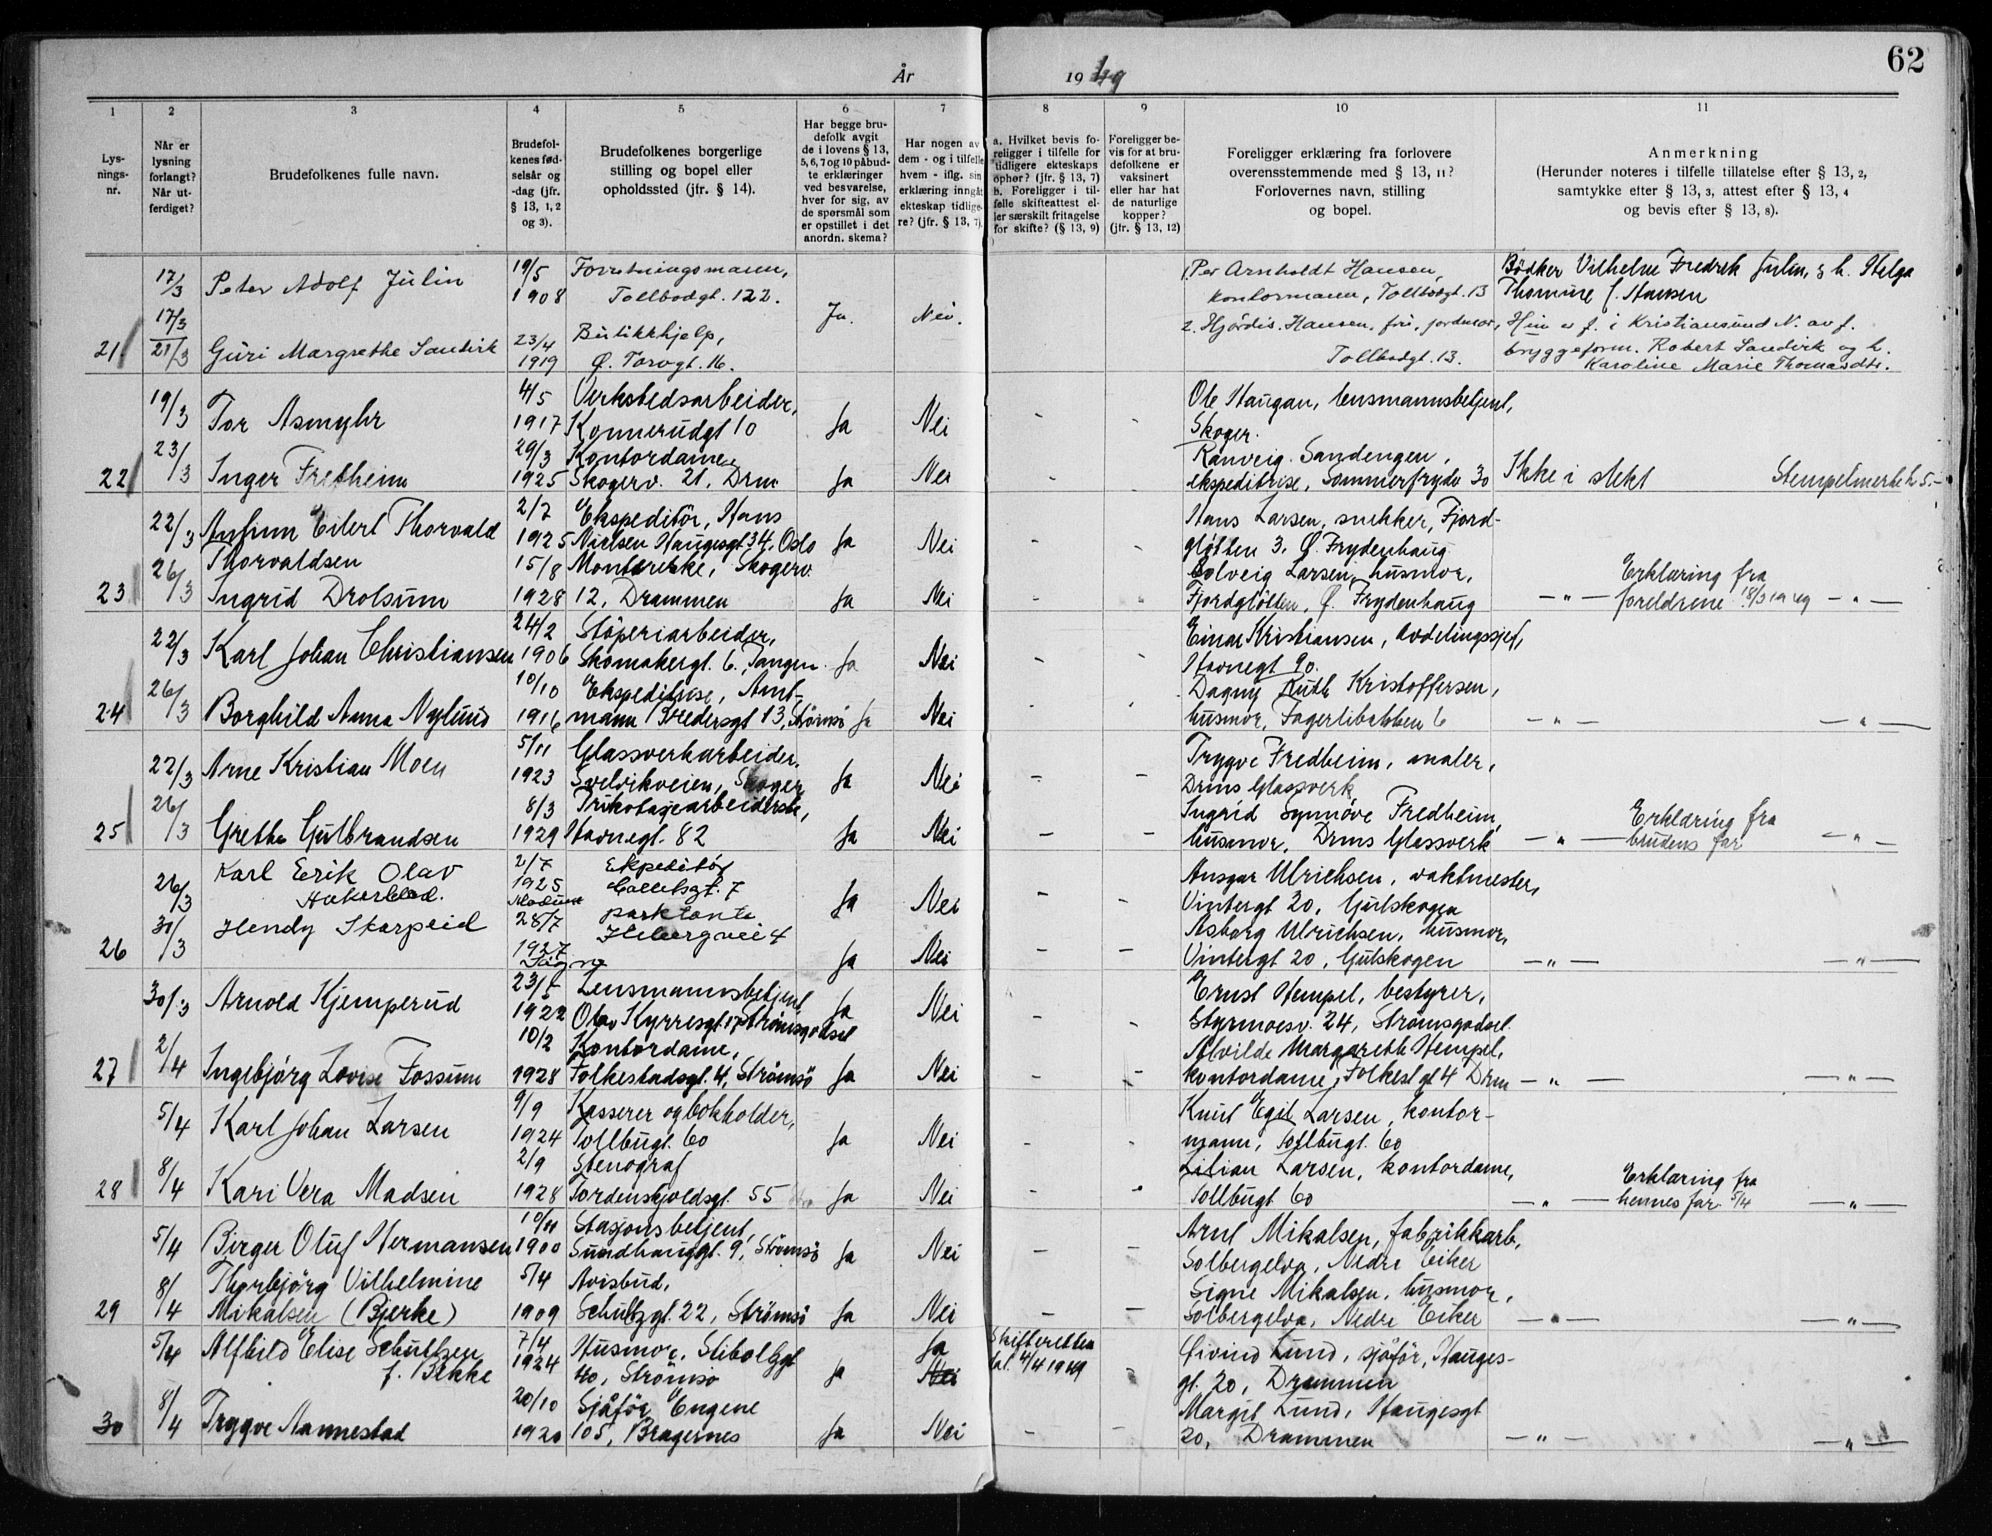 62
År 1949
1 2 3 4 5 6 7 8 9 10 11
Lys-
nings-
nr.
Når er
lysning
forlangt?
Når ut-
ferdiget?
Brudefolkenes fulle navn.
Brudefol-
kenes fød-
selsår og
-dag (jfr.
§ 13, 1, 2
og 3).
Brudefolkenes borgerlige
stilling og bopel eller
opholdssted (jfr. § 14).
Har begge bru-
defolk avgit
de i lovens § 13,
5, 6, 7 og 10 påbud-
te erklæringer
ved besvarelse,
hver for sig, av
de spørsmål som
er opstillet i det
anordn. skema?
Har nogen av
dem - og i tilfelle
hvem - iflg. sin
erklæring inngåt
ekteskap tidlige-
re? (jfr. § 13, 7).
a. Hvilket bevis fo-
religger i tilfelle for
tidligere ekteskaps
ophør? (jfr. § 13, 7)
b. Foreligger i til-
felle skifteattest el-
ler særskilt fritagelse
for skifte? (§ 13, 9)
Foreligger be-
vis for at bru-
defolkene er
vaksinert
eller har hat
de naturlige
kopper?
(jfr. § 13, 12)
Foreligger erklæring fra forlovere
overensstemmende med § 13, 11?
Forlovernes navn, stilling
og bopel.
Anmerkning
(Herunder noteres i tilfelle tillatelse efter § 13, 2,
samtykke efter § 13, 3, attest efter § 13, 4
og bevis efter § 13, 8).
17/3 Peter Adolf Julin 19/5 1908 Forretningsmann,
Tollbodgt. 122. Ja. Nei.
1. Per Arnholdt Hansen,
kontormann, Tollbodgt. 13
Bødker Vilhelm Fredrik Julin, & h. Helga
Thomine f. Hansen
21 17/3 21/3 Guri Margrethe Sandvik 23/4 1919 Butikkhjelp,
Ø. Torvgt. 16.
2. Hjördis Hansen, fru, jordmor,
Tollbodgt. 13.
Hun er f. i Kristiansund N. av f.
bryggeform. Robert Sandvik og h.
Karoline Marie Thomasdtr.
19/3 Tor Asmyhr 4/5 1917 Verkstedsarbeider,
Konnerudgt 10 Ja Nei - -
Ole Haugan, lensmannsbetjent,
Skoger.
22 23/3 Inger Fretheim 29/3 1925 Kontordame
Skogerv. 21, Drm Ja Nei - -
Ranveig Sandengen,
ekspeditrise, Sommerfrydv 30
Ikke i slekt Stempelmerke 5.-
22/3 Eilert Thorvald
Thorvaldsen 2/7 1925 Ekspeditör, Hans
Nielsen Haugesgt 34, Oslo Ja Nei - -
Hans Larsen, snekker, Fjord-
gløtten 3, Ø. Frydenhaug
23 26/3 Ingrid Drolsum 15/8 1928 Skogerv.
12, Drammen Ja Nei - -
Solveig Larsen, husmor,
Fjordgløtten, Ø. Frydenhaug
- " - Erklæring fra
foreldrene 18/3 1949 - " -
22/3 Karl Johan Christiansen 24/2 1906 Støperiarbeider,
Skomakergt. 6, Tangen. Ja Nei - -
Einar Kristiansen, avdelingssjef,
Havnegt 90.
24 26/3 Borghild Anna Nylund 10/10 1916 Ekspeditrise, Amt-
mann Bredersgt 13, Strömsö Ja Nei - -
Dagny Ruth Kristoffersen,
husmor, Fagerlibakken 6
- " - - " -
22/3 Arne Kristian Moen 5/11 1923 Glassverkarbeider.
Svelvikveien, Skoger Ja Nei - -
Trygve Fredheim, maler,
Drms Glassverk
25 26/3 Grethe Gulbrandsen 8/3 1929 Trikotasjearbeiderske,
Havnegt. 82 Ja Nei - -
Ingrid Synnöve Fredheim,
husmor, Drms Glassverk
- " - Erklæring fra
brudens far - " -
26/3 Karl Erik Olav
2/7 1925
Modum Ekspeditör
Colletsgt. 7 Ja Nei - -
Ansgar Ulrichsen, vaktmester,
Vintergt 20, Gulskogen
26 30/3 Hendy Skarpeid 28/7 1927 parktante
Ja Nei - -
Asborg Ulrichsen, husmor,
Vintergt 20, Gulskogen
- " - - " -
30/3 Arnold Kjemperud 23/5 1922 Lensmannsbetjent
Olav Kyrresgt 17 Strömsgodset Ja Nei - -
Ernst Hempel, bestyrer,
Styrmoesv. 24, Strömsgodset.
27 2/4 Ingebjörg Lovise Fossum 10/2 1928 Kontordame,
Folkestadsgt. 4, Strömsö Ja Nei - -
Alvilde Margarethe Hempel,
kontordame, Folkest gt 4 Drm
- " - - " -
5/4 Karl Johan Larsen 9/9 1924 Kasserer og bokholder,
Tollbugt. 60 Ja Nei - -
Knut Egil Larsen, kontor-
mann, Tollbugt. 60
28 8/4 Kari Vera Madsen 2/9 1928 Stenograf
Tordenskjoldsgt. 55 Ja Nei - -
Lilian Larsen, kontordame,
Tollbugt 60
- " - Erklæring fra
hennes far 5/4 - " -
5/4 Birger Oluf Hermansen 10/11 1900 Stasjonsbetjent,
Sundhauggt. 9, Strömsö Ja Nei - -
Arnt Mikalsen, fabrikkarb,
Solbergelva, Nedre Eiker
29 8/4 Thorbjörg Vilhelmine
Mikalsen (Bjerke) 5/4 1909 Avisbud,
Schultzgt. 22, Strömsö Ja Nei - -
Signe Mikalsen, husmor,
Solbergelva, Nedre Eiker
- " - - " -
5/4 Alfhild Elise Schultzen
f. Bekke 7/4 1924 Husmor, Stiboltgt
40, Strömsö Ja Ja
Nei
Skifteretten
4/4 1949 -
Öivind Lund, sjåför, Hauges-
gt. 20, Drammen
30 8/4 Trygve Aannestad 20/10 1920 Sjåför Engene
105, Bragernes Ja Nei - -
Margit Lund, Haugesgt
20, Drammen
- " - - " -